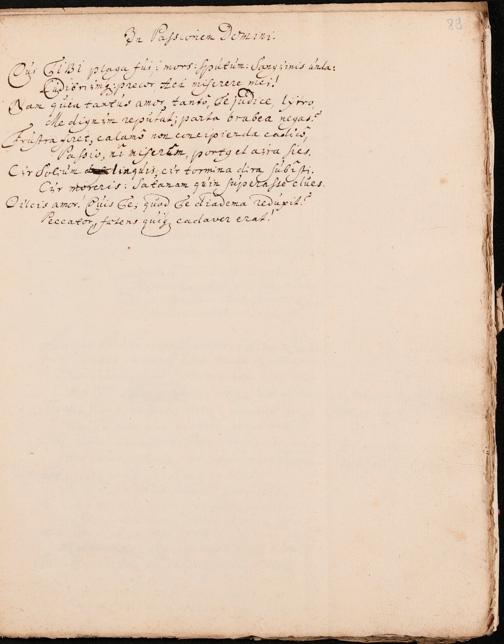 In Passionem Domini.
89
Qui TIBI plaga fui; mors; spûtum; Sangvinis unda:
precor, Heu miserere mei!
Nam quem tantus amor, tanto, Te judice, lytro,
Me dignum reputat; parta brabea negas?
Frustra foret, calamo non concipienda
Passio, ni miserum, portet ad astra sies.
Cur Solium linquis, cur tormina dira subisti.
Cur moreris: Satanam quin superasse clues.
Dulcis amor. Quis Te, quod Te diadema redemit?
Peccator, fatens cadaver erat!